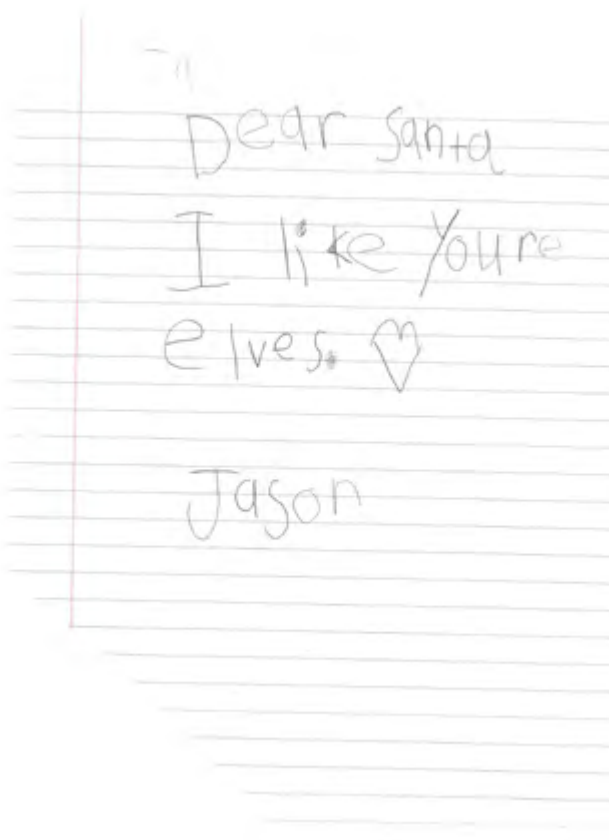 Dear Santa
I like Youre
elves. ♡
Jason